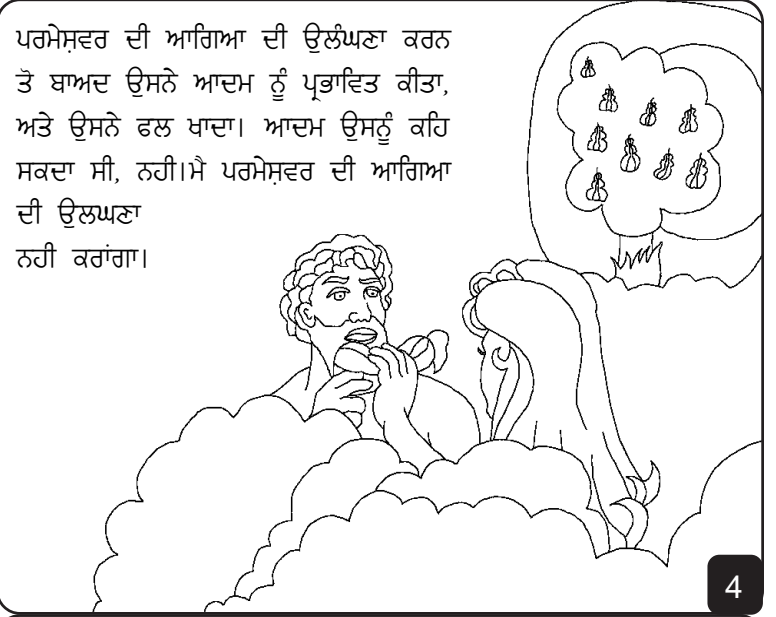 ਪਰਮੇਸ਼ਵਰ ਦੀ ਆਗਿਆ ਦੀ ਉਲੰਘਣਾ ਕਰਨ
ਤੋ ਬਾਅਦ ਉਸਨੇ ਆਦਮ ਨੂੰ ਪ੍ਰਭਾਵਿਤ ਕੀਤਾ,
ਅਤੇ ਉਸਨੇ ਫਲ ਖਾਦਾ। ਆਦਮ ਉਸਨੂੰ ਕਹਿ
ਸਕਦਾ ਸੀ, ਨਹੀ।ਮੈ ਪਰਮੇਸ਼ਵਰ ਦੀ ਆਗਿਆ
ਦੀ ਉਲਘਣਾ
ਨਹੀ ਕਰਾਂਗਾ।
4